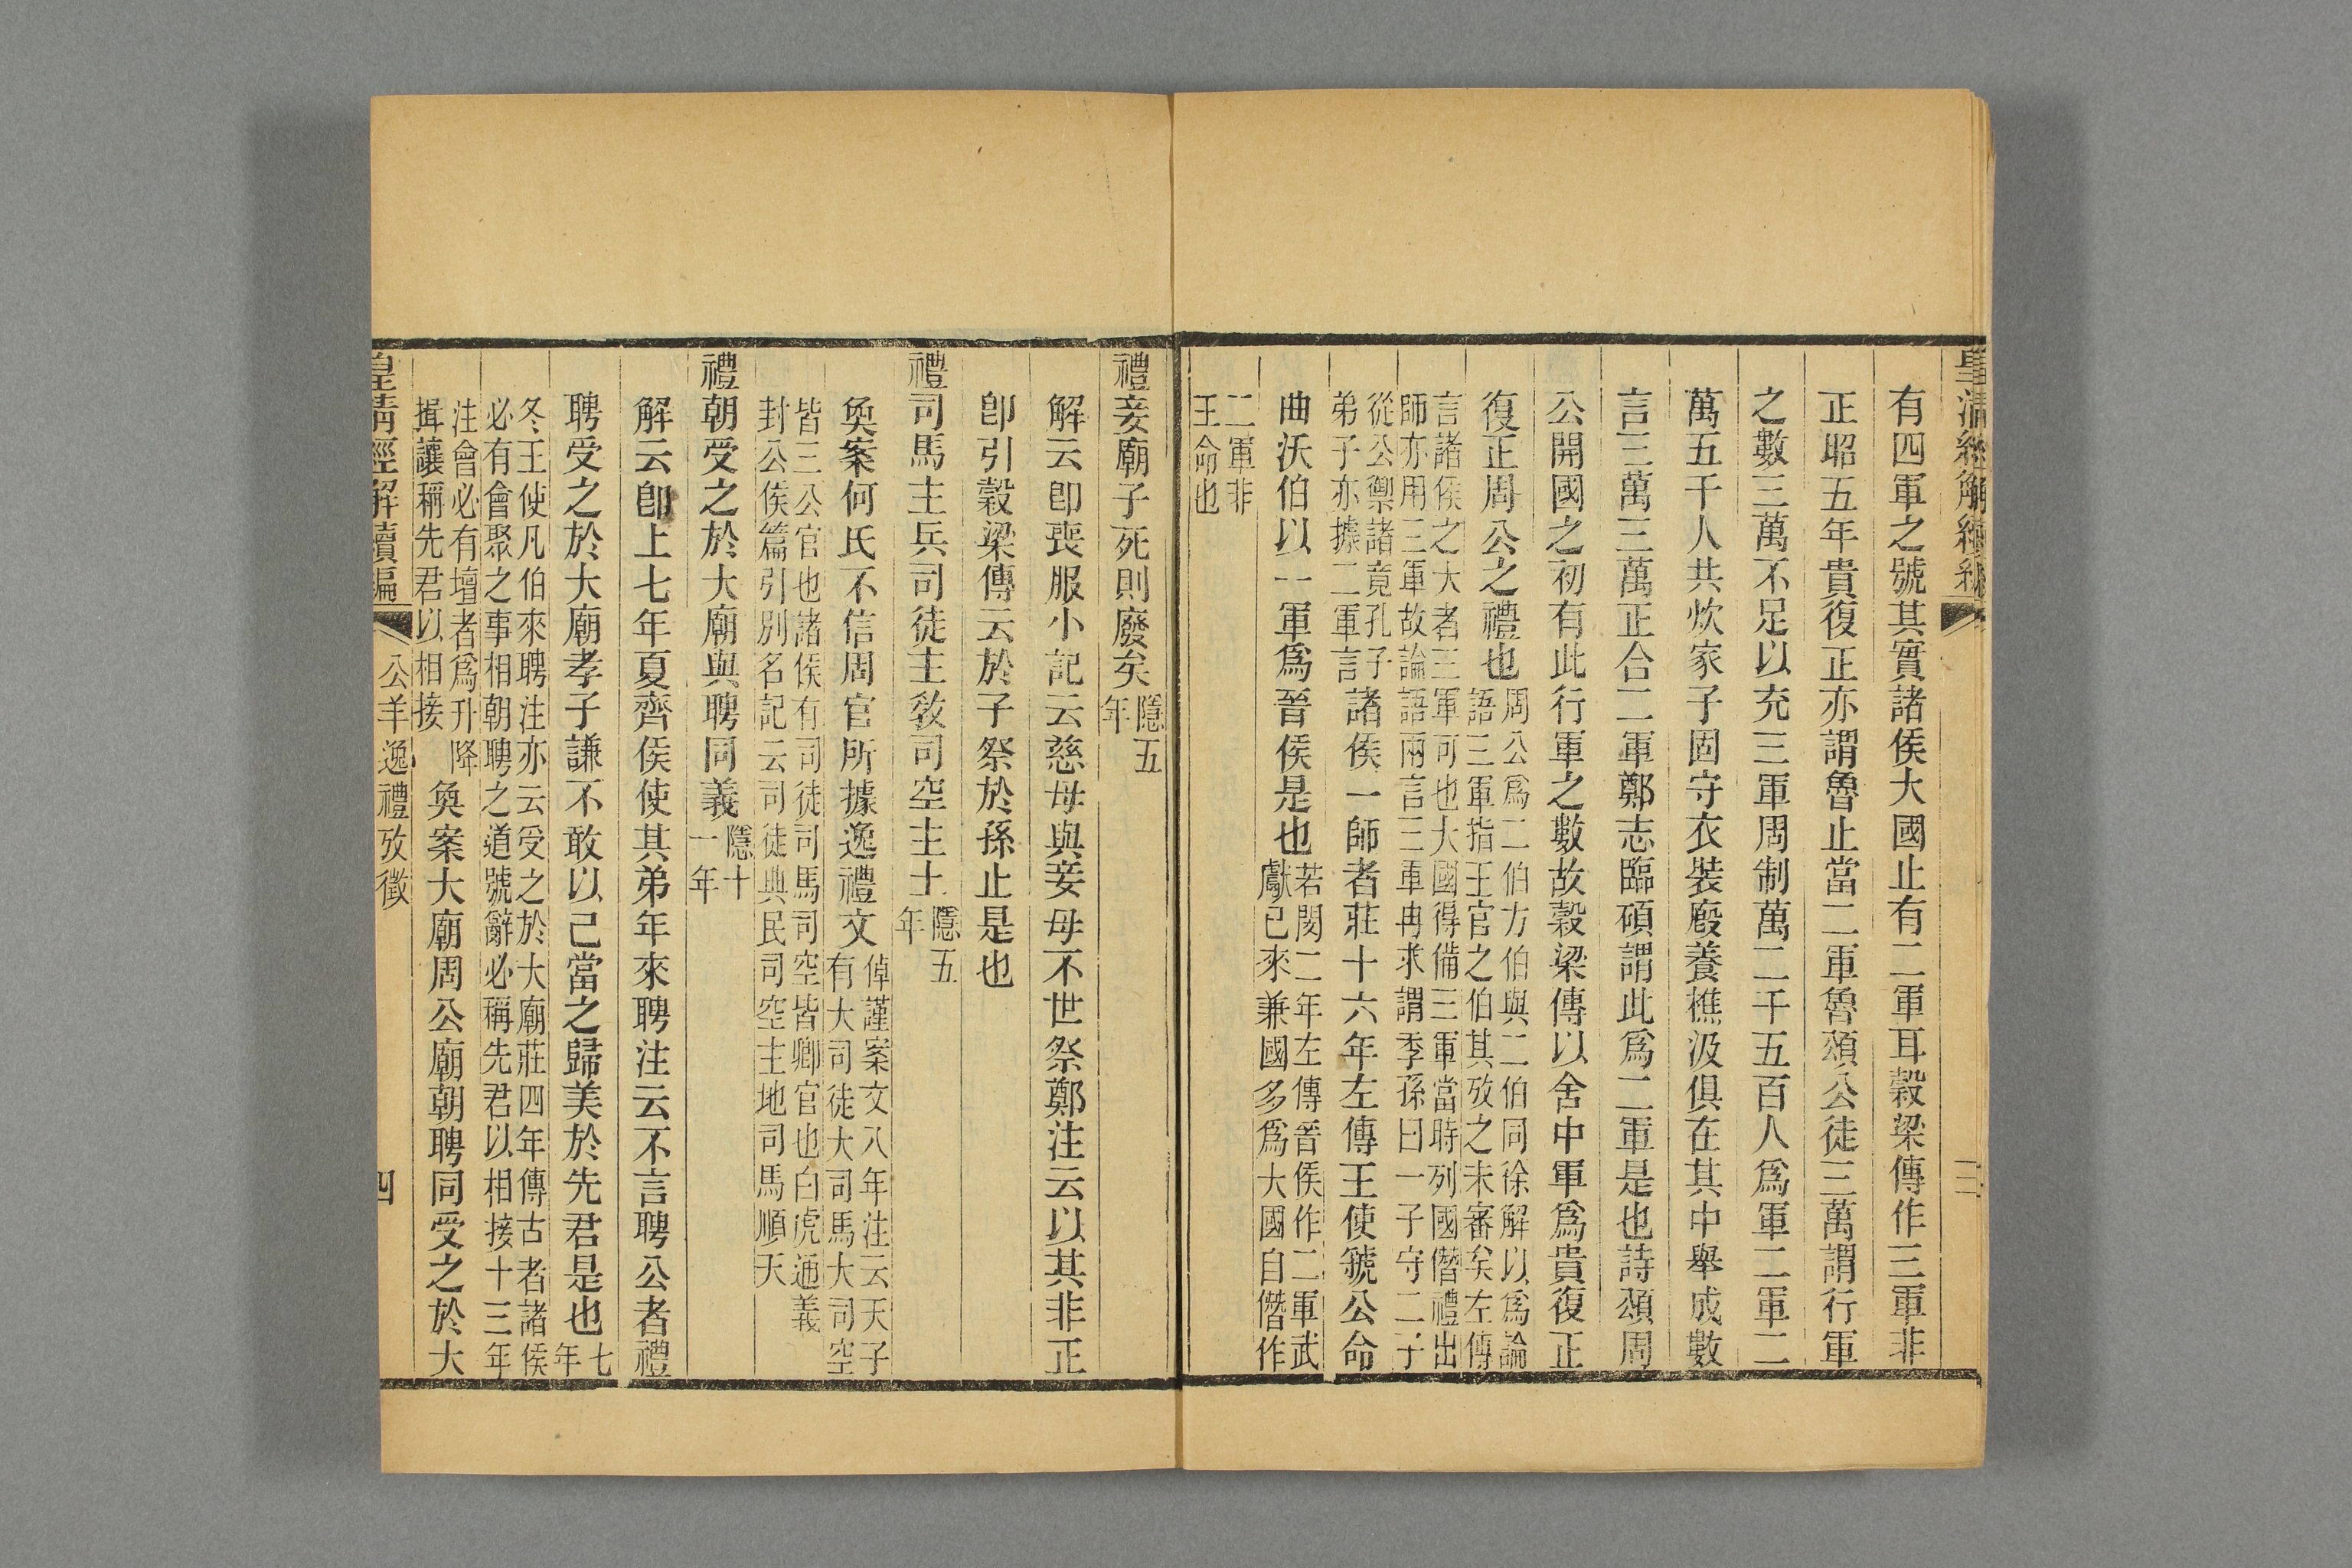 皇清經解續編
三
有四軍之號其實諸侯大國止有二軍耳穀梁傳作三軍非
正昭五年貴復正亦謂魯止當二軍魯頌公徒三萬謂行軍
之數三萬不足以充三軍周制萬二千五百人爲軍二軍二
萬五千人共炊家子固守衣裝廄養樵汲俱在其中舉成數
言三萬三萬正合二軍鄭志臨碩謂此爲二軍是也詩頌周
公開國之初有此行軍之數故穀梁傳以舍中軍爲貴復正
復正周公之禮也
周公爲二伯方伯與二伯同徐解以爲論
語三軍指王官之伯其攷之未審矣左傳
言諸侯之大者三軍可也大國得備三軍當時列國僭禮出
師亦用三軍故論語兩言三軍冉求謂季孫曰一子守二子
從公禦諸竟孔子
弟子亦據二軍言
諸侯一師者莊十六年左傳王使虢公命
曲沃伯以一軍爲晉侯是也
若閔二年左傳晉侯作二軍武
獻已來兼國多爲大國自僭作
二軍非
王命也
禮妾廟子死則廢矣
隱五
年
解云卽喪服小記云慈母與妾母不世祭鄭注云以其非正
卽引穀梁傳云於子祭於孫止是也
禮司馬主兵司徒主敎司空主土
隱五
年
奐案何氏不信周官所據逸禮文
倬謹案文八年注云天子
有大司徒大司馬大司空
皆三公官也諸侯有司徒司馬司空皆卿官也白虎通義
封公侯篇引別名記云司徒典民司空主地司馬順天
禮朝受之於大廟與聘同義
隱十
一年
解云卽上七年夏齊侯使其弟年來聘注云不言聘公者禮
聘受之於大廟孝子謙不敢以己當之歸美於先君是也
七
年
冬王使凡伯來聘注亦云受之於大廟莊四年傳古者諸侯
必有會聚之事相朝聘之道號辭必稱先君以相接十三年
注會必有壇者爲升降
揖讓稱先君以相接
奐案大廟周公廟朝聘同受之於大
皇清經解續編
公羊逸禮攷徵
四